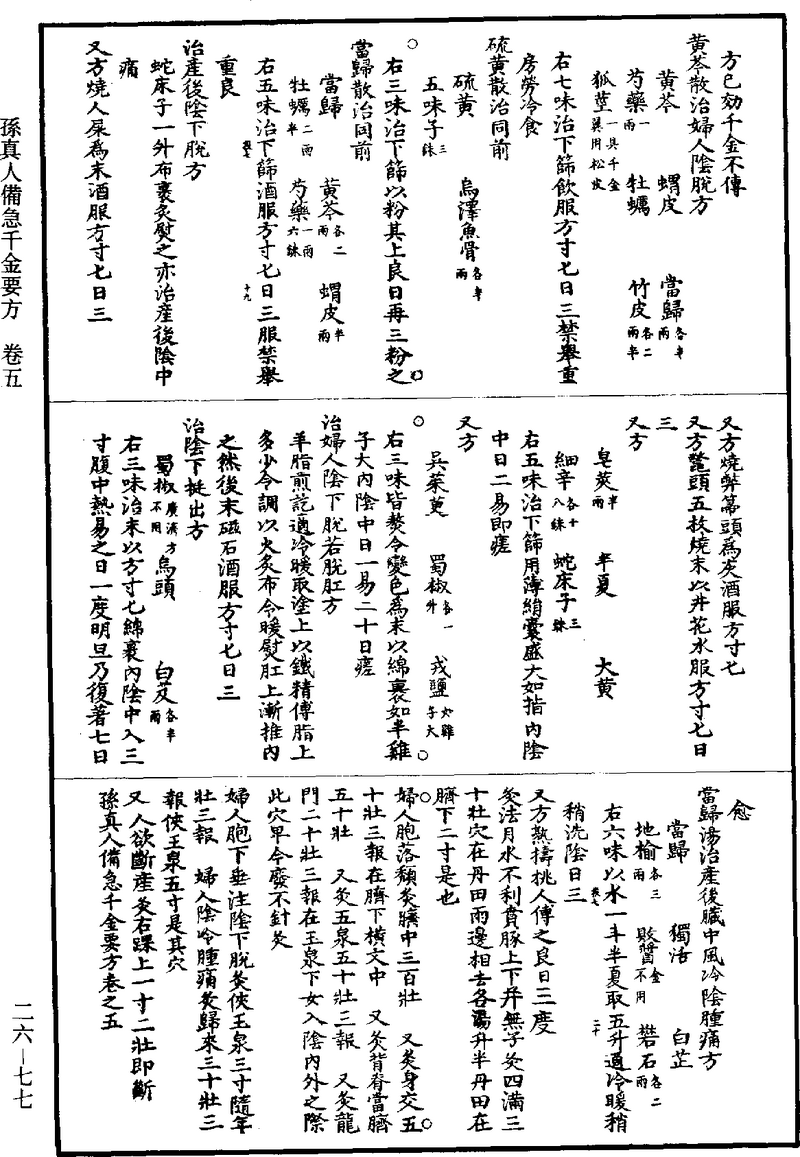 方已効千金不傳
黄芩散治婦人陰脫方
黄芩　蝟皮　當歸各半兩
芍藥一兩　牡蠣　竹皮各二兩半
狐莖一具千金翼用松皮
右七味治下篩飲服方寸匕日三禁舉重
房勞冷食
硫黄散治同前
硫黄　烏澤魚骨各半兩
五味子三銖
右三味治下篩以粉其上良日再三粉之
當歸散治同前
當歸　黄芩各二兩　蝟皮半兩
牡蠣二兩半　芍藥一兩六銖
右五味治下篩酒服方寸匕日三服禁舉
十九
重良
治產後陰下脫方
蛇床子一升布裹炙熨之亦治產後陰中
痛
又方燒人屎為末酒服方寸匕日三
又方燒弊箒頭為灰酒服方寸匕
又方鼈頭五枚燒末以井花水服方寸匕日
三
又方
皂莢半兩　半夏　大黄
細辛各十八銖　蛇床子三銖
右五味治下篩用薄絹囊盛大如指內陰
中日二易即瘥
又方
吳茱萸　蜀椒各一升　戎鹽如雞子大
右三味皆熬令變色為末以綿裹如半雞
子大內陰中日一易二十日瘥
治婦人陰下脫若脫肛方
羊脂煎訖適冷暖取塗上以鐵精傅脂上
多少令調以火炙布令暖熨肛上漸推內
之然後末磁石酒服方寸匕日三
治陰下挺出方
蜀椒廣濟方不用　烏頭　白芨各半兩
右三味治末以方寸匕綿裹內陰中入三
寸腹中熱易之日一度明旦乃復著七日
愈
當歸湯治產後臟中風冷陰腫痛方
當歸　獨活　白芷
地榆各三兩　敗醬千金不用　礬石各二兩
右六味以水一斗半夏取五升適冷暖稍
二十
稍洗陰日三
又方熱擣桃人傅之良日三度
灸法月水不利賁豚上下并無子灸四滿三
十壯穴在丹田兩邊相去各開寸半丹田在
臍下二寸是也
婦人胞落頹灸臍中三百壯　又灸身交五
十壯三報在臍下橫文中　又灸背脊當臍
五十壯　又灸玉泉五十壯三報　又灸龍
門二十壯三報在玉泉下女入陰內外之際
此穴早今廢不針灸
婦人胞下垂注陰下脫灸俠玉泉三寸隨年
壯三報　婦人陰冷腫痛灸歸來三十壯三
報俠玉泉五寸是其穴
又人欲斷產灸右踝上一寸二壯即斷
孫真人備急千金要方卷之五
孫真人備急千金要方　卷五
二六—七七